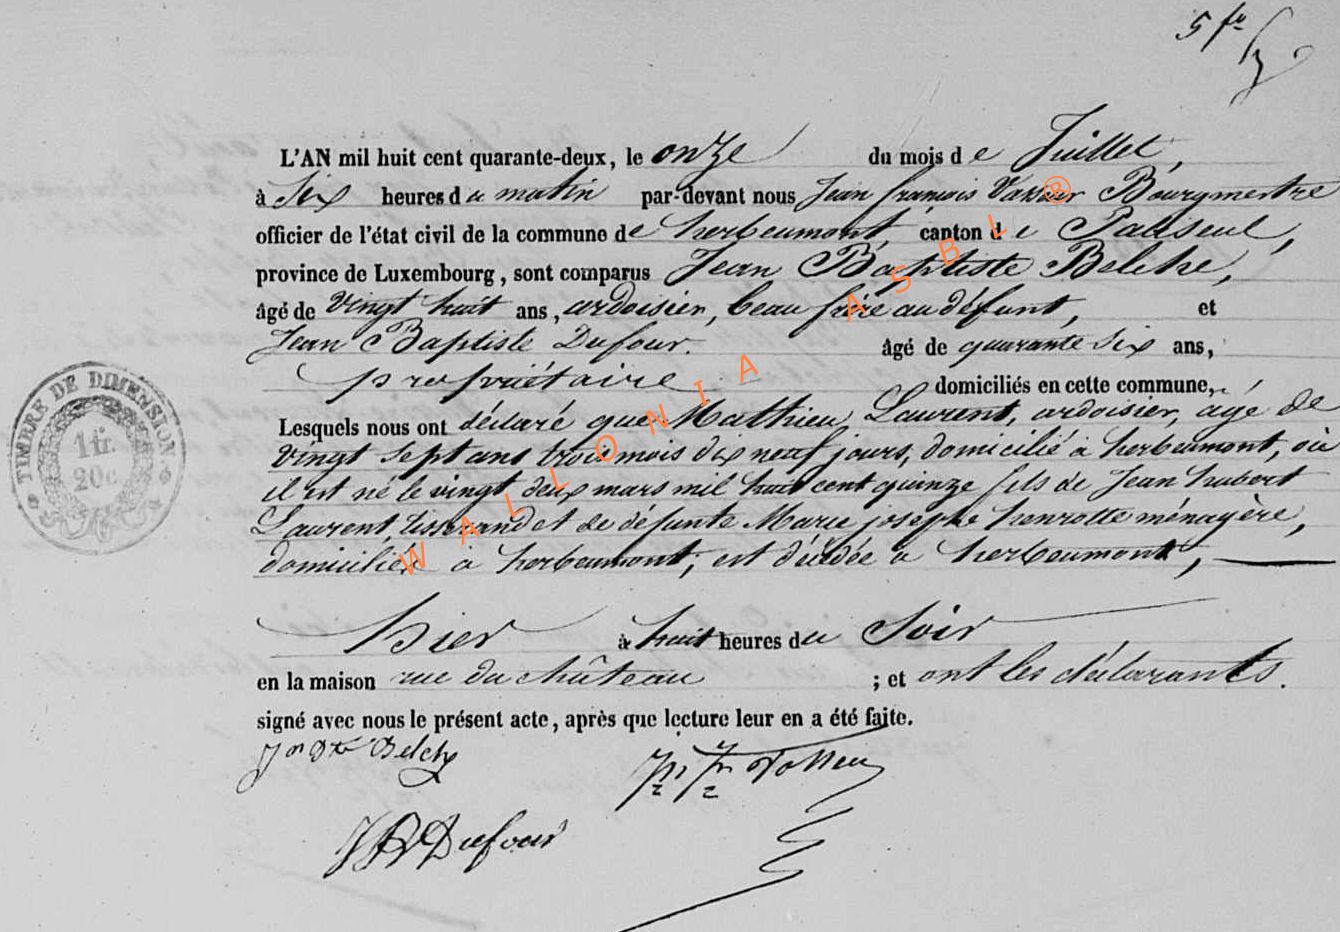 5 fo
L'AN mil huit cent quarante-deux, le onze du mois de Juillet,
à six heures du matin par-devant nous Jean françois Bourgmestre
officier de l'état civil de la commune de herbeumont, canton de Paliseul,
province de Luxembourg, sont comparus Jean Baptiste Belche,
âgé de vingt huit ans, ardoisier, beau frère au défunt, et
Jean Baptiste Dufour. âgé de quarante six ans,
propriétaire domiciliés en cette commune,
Lesquels nous ont déclaré que Mathieu Laurent, ardoisier, agé de
vingt sept ans trois mois dix neuf jours, domicilié à herbeumont, où
il est né le vingt deux mars mil huit cent quinze fils de Jean hubert
Laurent, tisserand et de défunte Marie josephe henrotte ménagère,
domiciliée à herbeumont, est décédée à herbeumont,
hier à huit heures du soir
en la maison rue du château ; et ont les déclarants.
signé avec nous le présent acte, après que lecture leur en a été faite.
Jn Bte Belche
JB Dufour
TIMBRE DE DIMENSION
1 fr.
20c.
WALLONIA ASBL ®